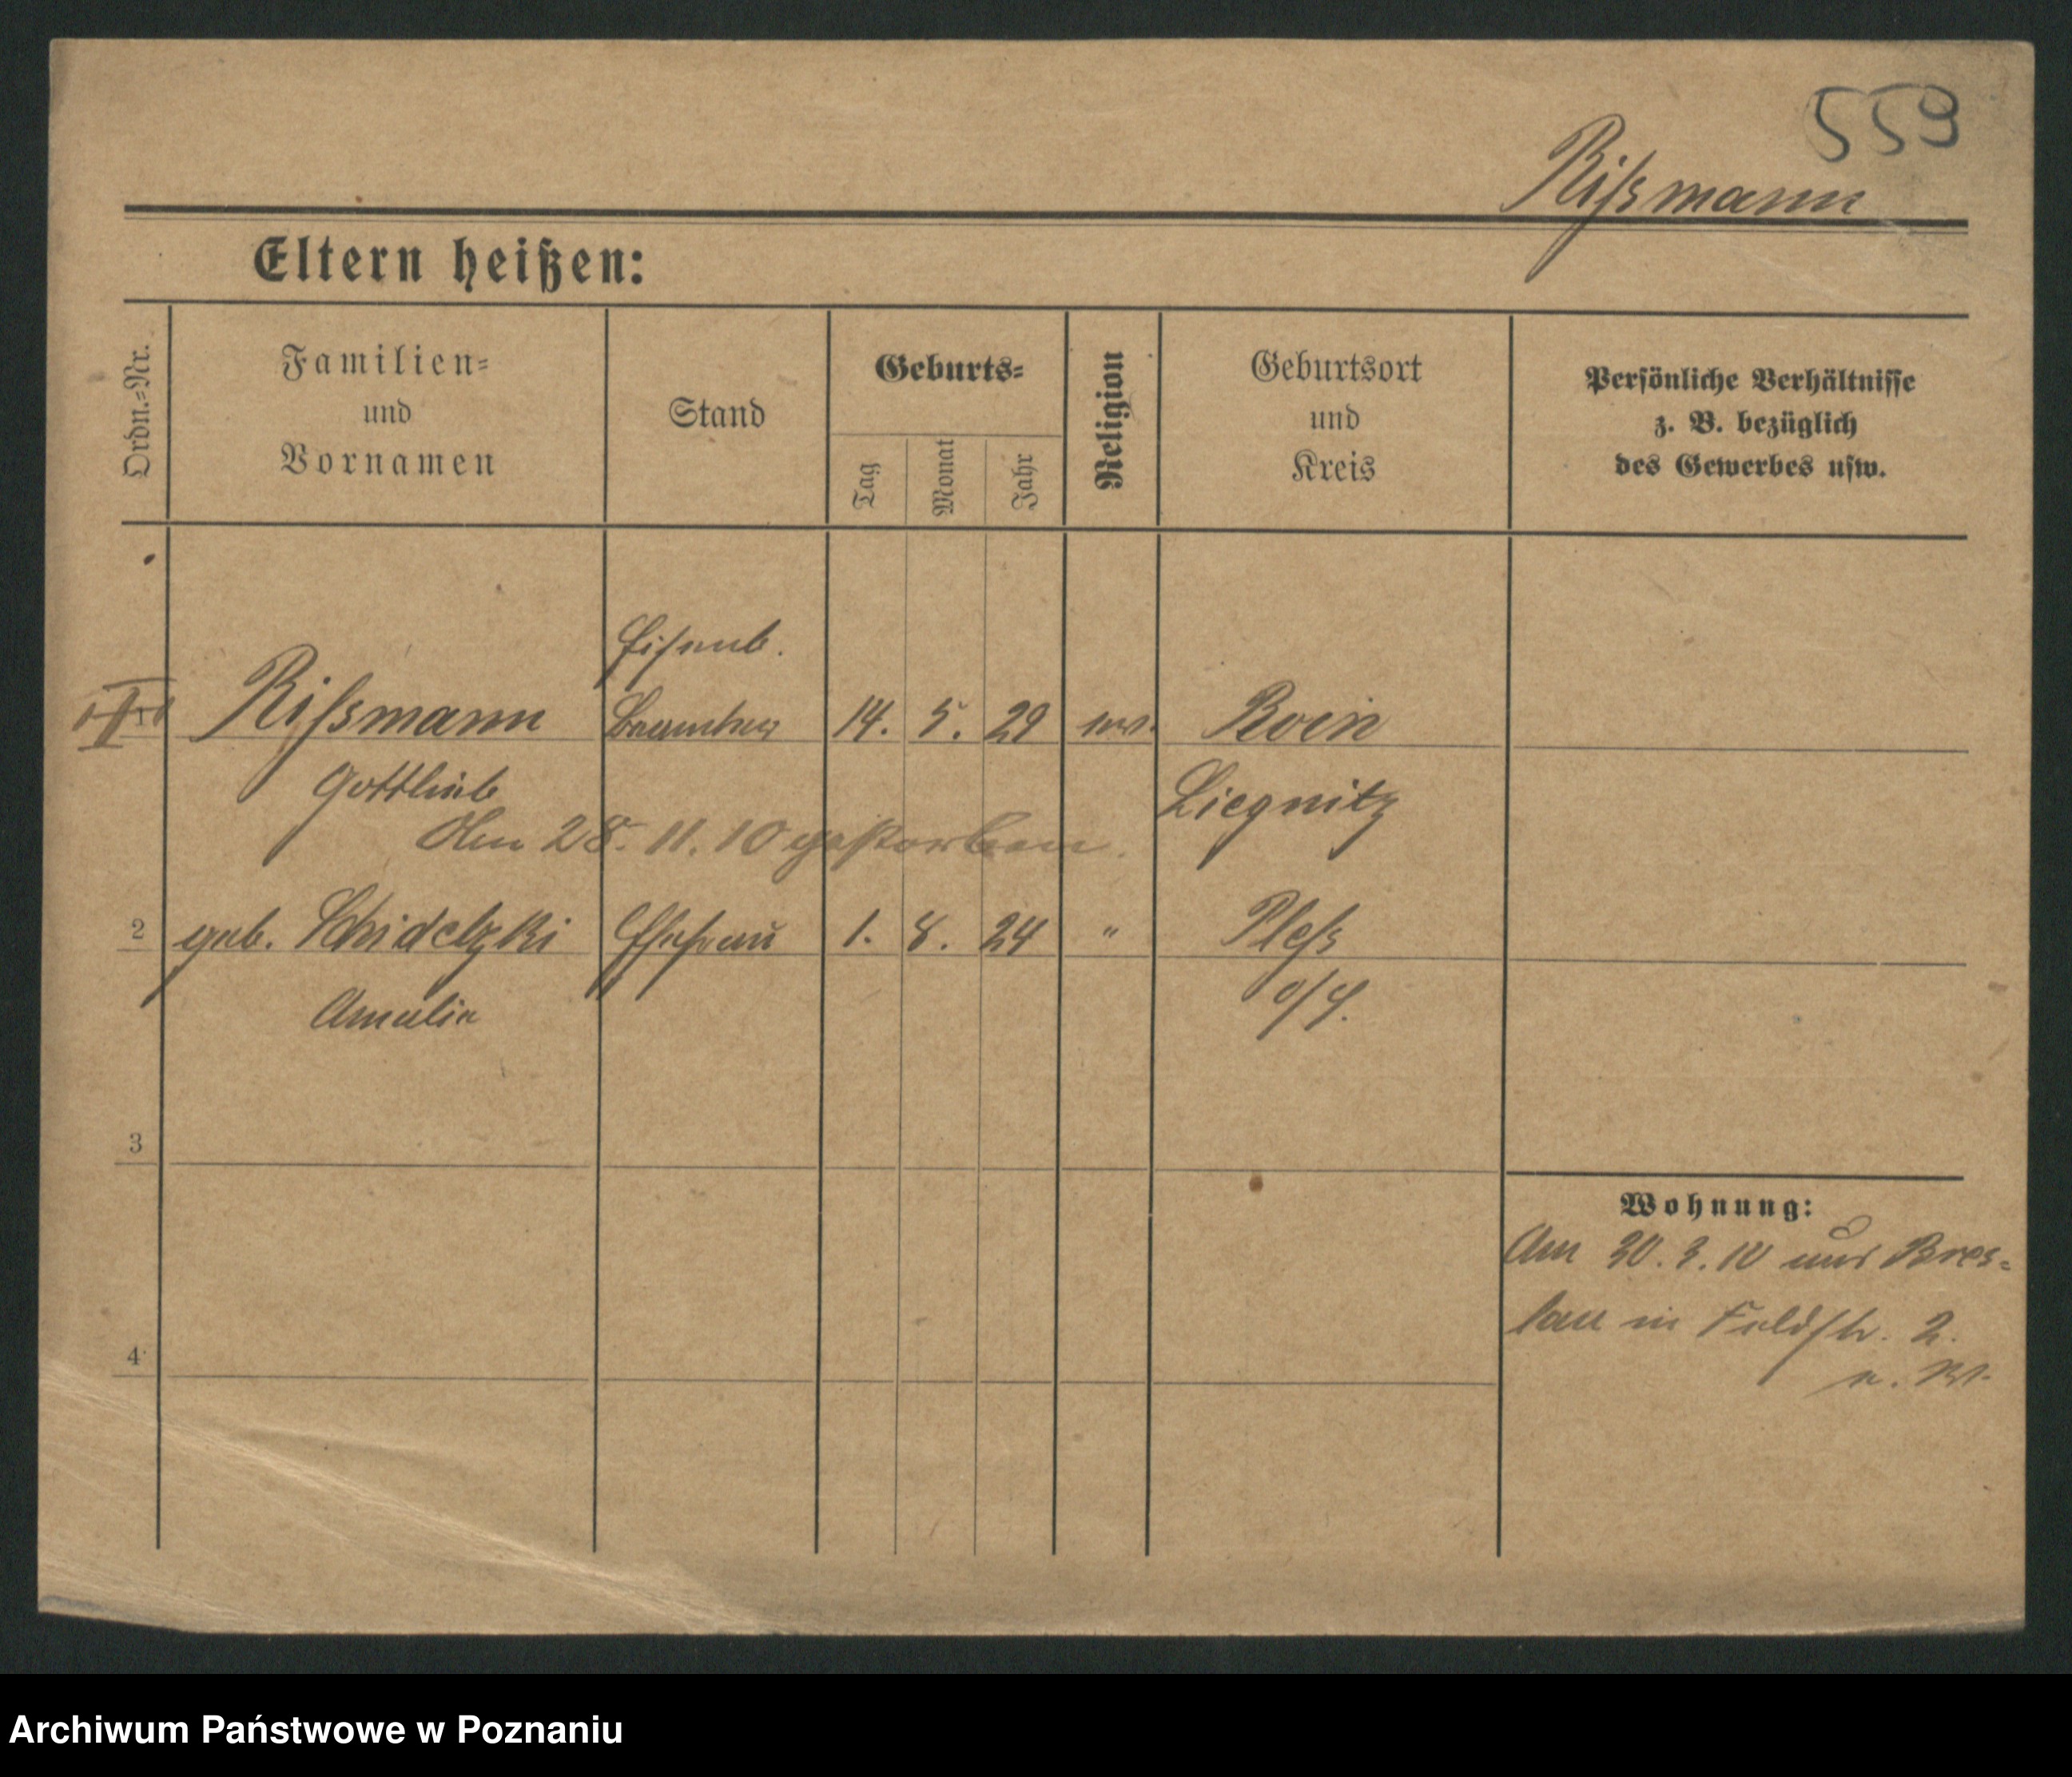 559
Rißmann
Eltern heißen:
Ordn.=Nr.
Familien=
und
Vornamen
Stand
Geburts=
Tag
Monat
Jahr
Religion
Geburtsort
und
Kreis
Persönliche Verhältnisse
z. B. bezüglich
des Gewerbes usw.
Eisenb.
Rißmann 14. 5. 29 ev. Roin
Gottlieb Liegnitz
Am 28. 11. 10 gestorben.
2 geb. Schidelzki Ehefrau 1. 8. 24 " Pleß
Amalie O/S.
3
Wohnung:
Am 30. 3. 10 aus Bres=
lau in Feldstr. 2.
4
Archiwum Państwowe w Poznaniu